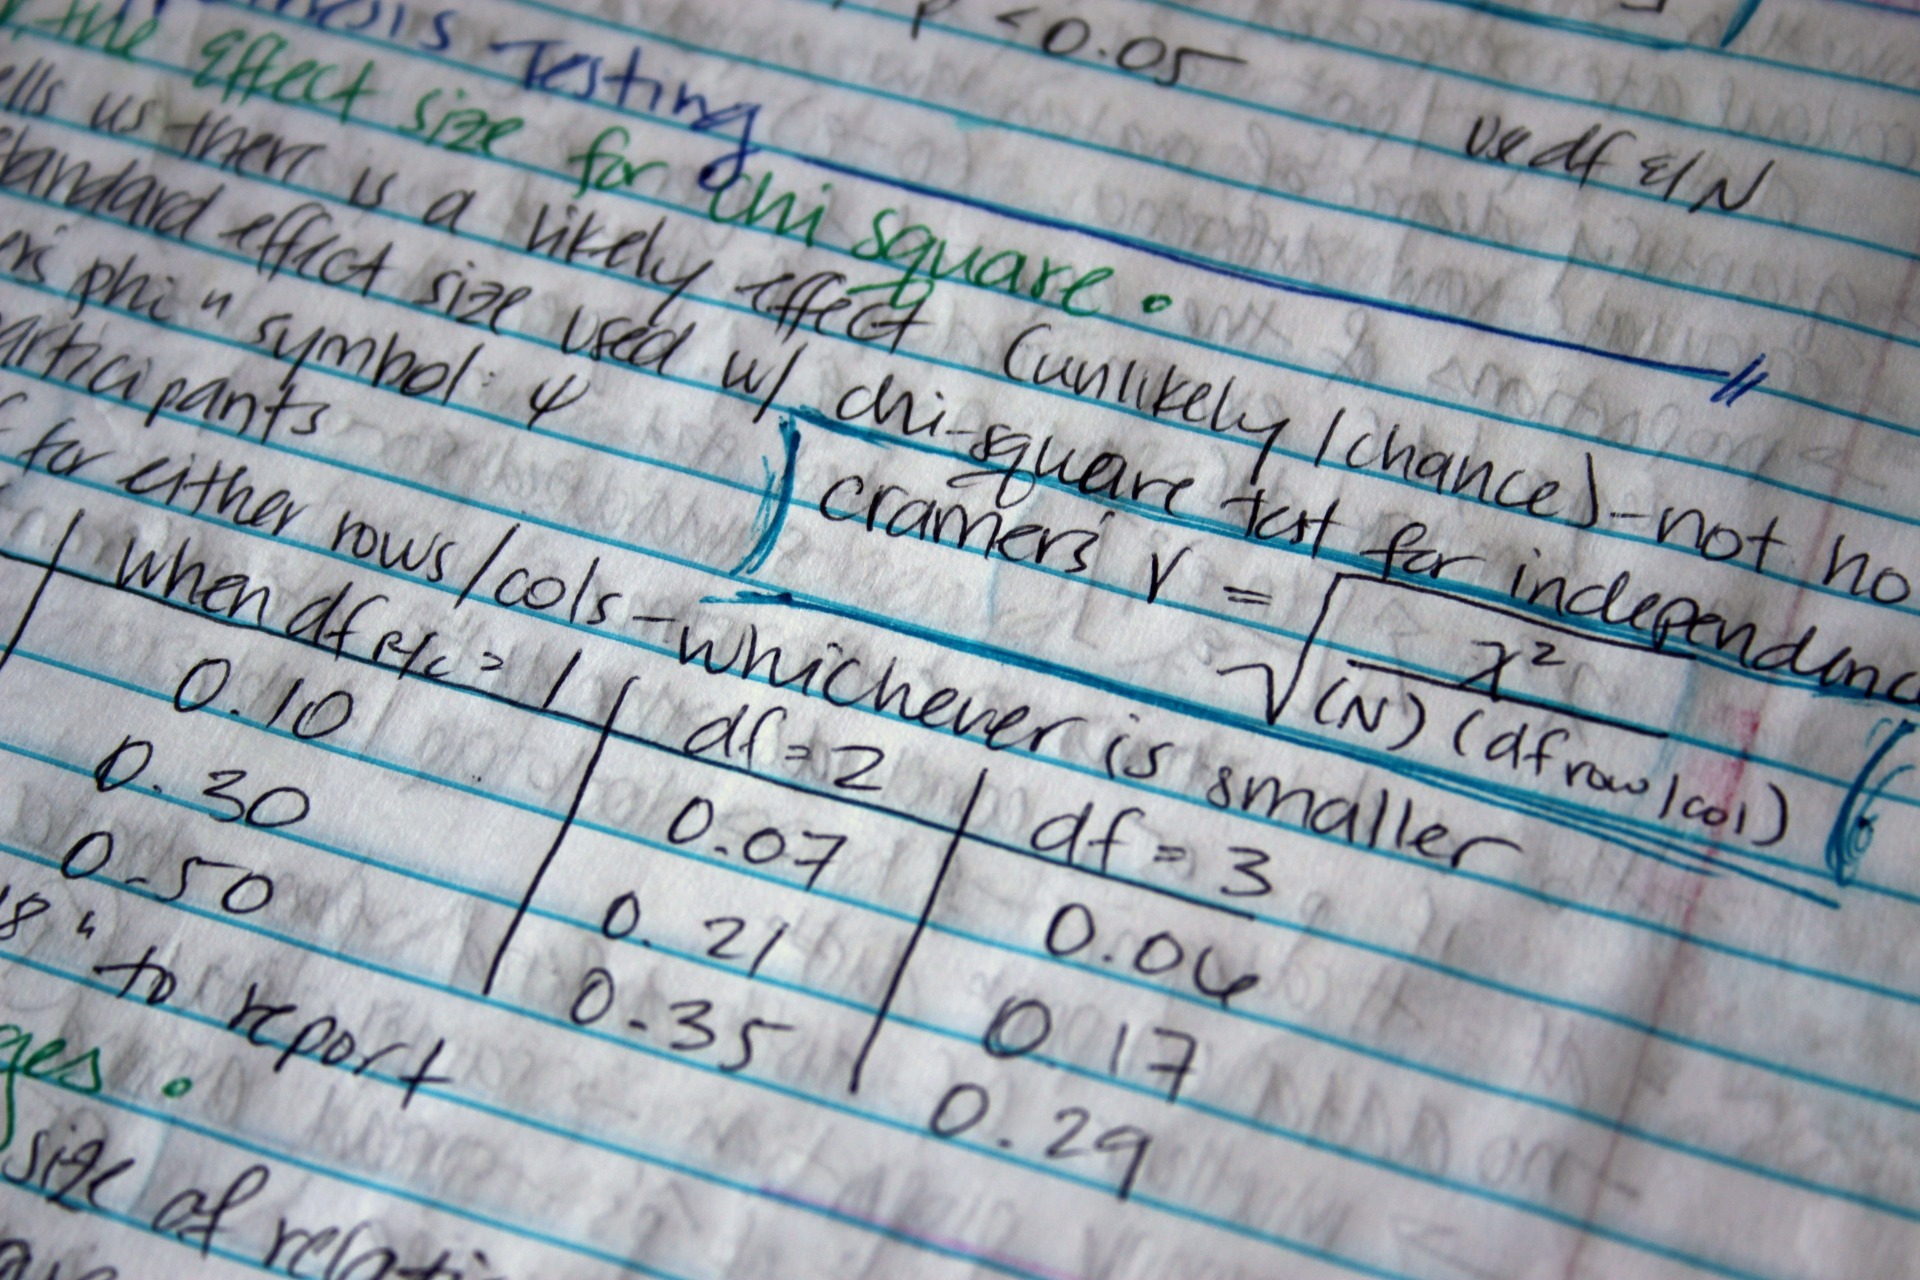 p < 0.05
Testing
use df & N
the effect size for chi square.
us there is a likely effect (unlikely / chance) - not no
standard effect size used w/ chi-square test for independenc
phi" symbol: φ
cramer's V = √ χ² / (N) (df row/col)
participants
for either rows/cols - whichever is smaller
when df R/C = 1 df = 2 df = 3
0.10 0.07 0.06
0.30 0.21 0.17
0.50 0.35 0.29
" to report
size of